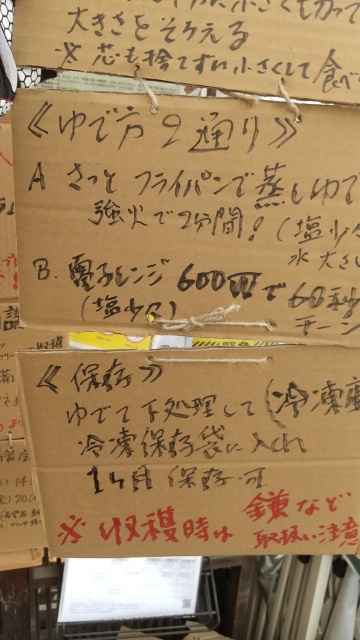 大きさをそろえる
※ 芯も捨てずに小さくして食べ
《ゆで方2通り》
A さっと フライパンで蒸しゆで
強火で2分間! (塩少々
水 大さじ
B. 電子レンジ 600Wで 60秒
(塩少々) チーン
《保存》
ゆでて下処理して (冷凍庫
冷凍保存袋に入れ
1ヶ月 保存可
※ 収穫時は 鎌など
取扱い注意